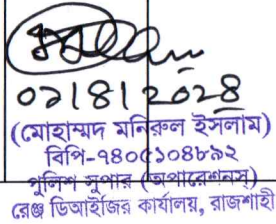 ০২|৪|২০২৪
(মোহাম্মদ মনিরুল ইসলাম)
বিপি-৭৪০৫১০৪৮৯২
পুলিশ সুপার (অপারেশনস্)
রেঞ্জ ডিআইজির কার্যালয়, রাজশাহী